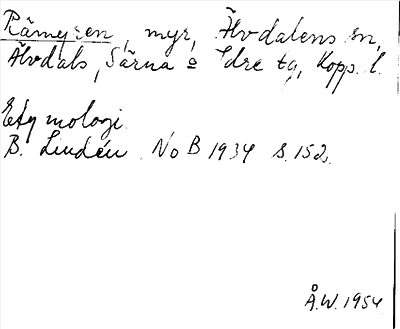 Råmyren, myr, Älvdalens sn,
Älvdals, Särna o Idre tg, Kopp. l.
Etymologi.
B. Lindén NoB 1934 s. 152.
Å.W. 1954